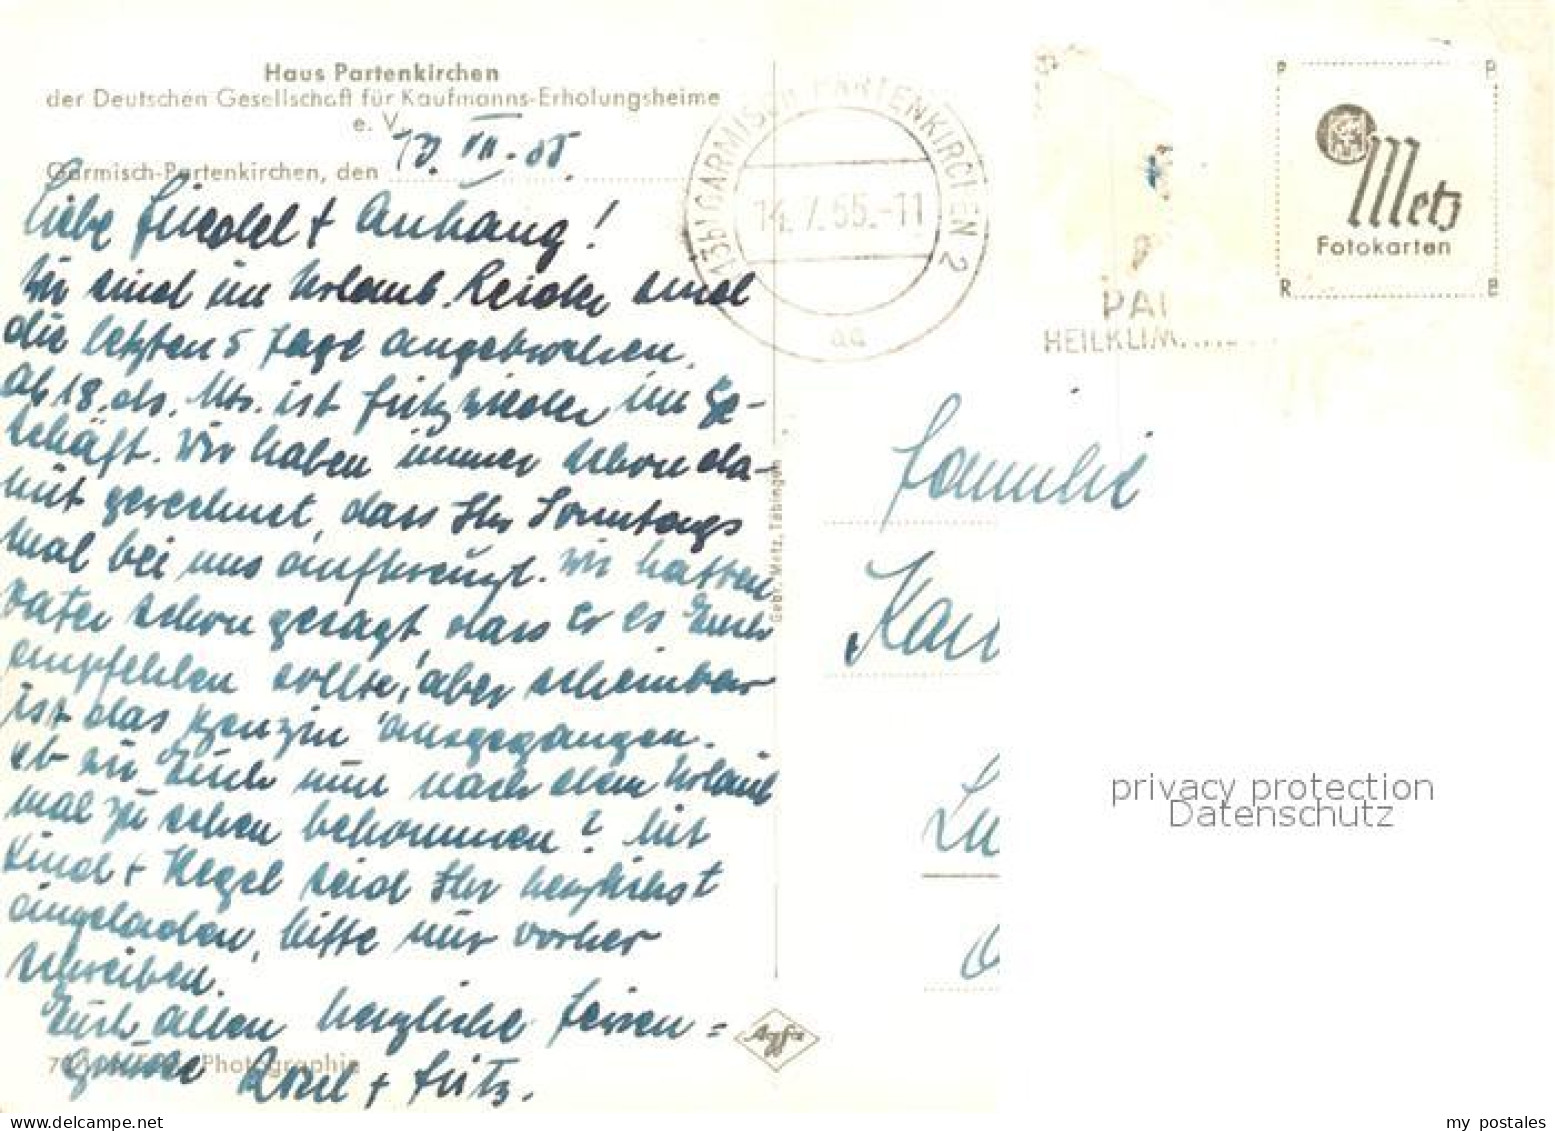 Haus Partenkirchen
der Deutschen Gesellschaft für Kaufmanns-Erholungsheime
e. V.
Garmisch-Partenkirchen, den 13. VII. 55.
Liebe Friedel + Anhang!
Wir sind im Urlaub. Leider sind
die letzten 5 Tage angebrochen.
Ab 18. ds. Mts. ist Fritz wieder im Ge-
schäft. Wir haben immer schon da-
mit gerechnet, dass Ihr Sonntags
mal bei uns aufkreuzt. Wir hatten
Vater schon gesagt, dass er es Euch
empfehlen sollte, aber scheinbar
ist das Benzin ausgegangen.
Ob wir Euch nun nach dem Urlaub
mal zu sehen bekommen? Mit
Kind + Kegel seid Ihr herzlichst
eingeladen, bitte nur vorher
schreiben.
Euch allen herzliche Ferien=
Grüsse Rosel + Fritz.
Photographie
Gebr. Metz, Tübingen
Agfa
(13b) GARMISCH-PARTENKIRCHEN 2
14.7.55.-11
aa
PAR
HEILKLIMA
P P
Metz
Fotokarten
R B
Familie
Kar
Lu
privacy protection
Datenschutz
my postales